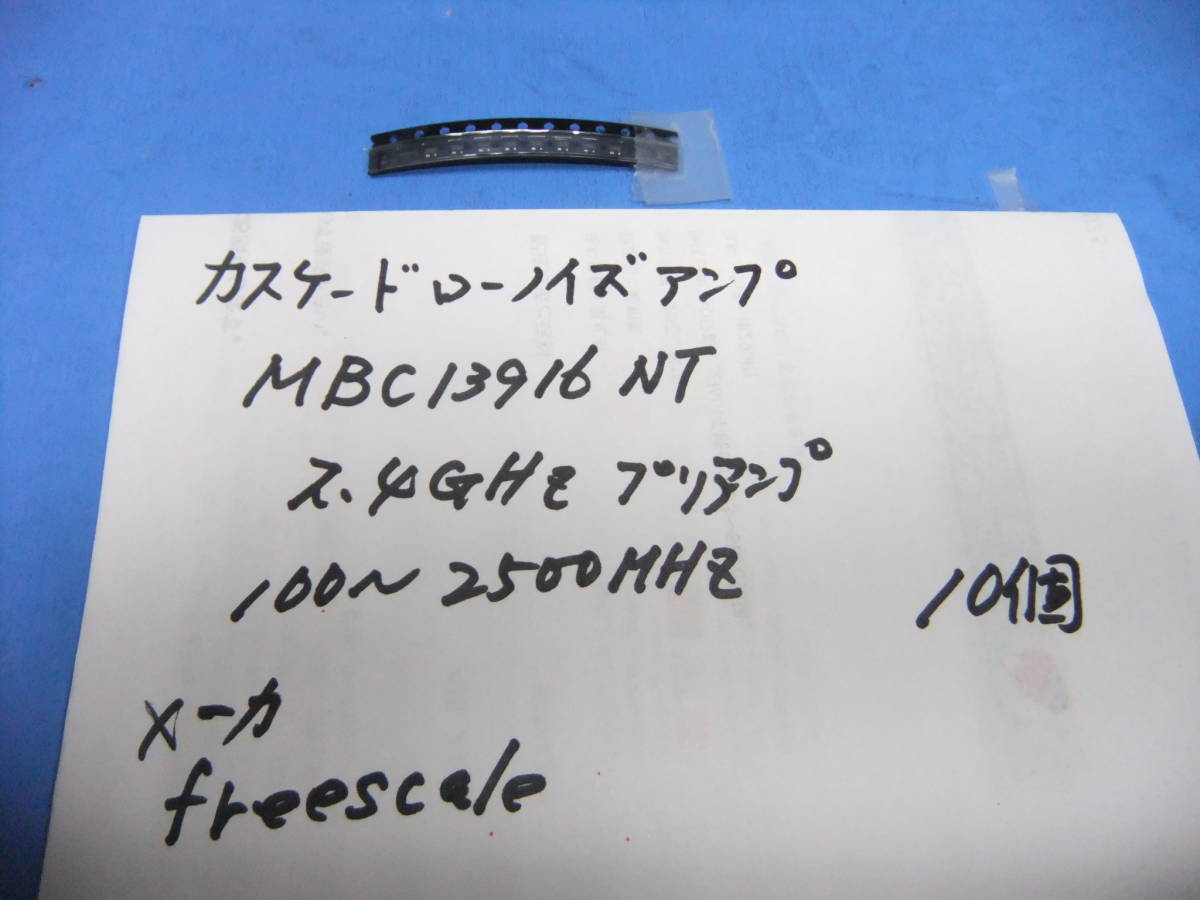 カスケードローノイズアンプ
MBC13916NT
2.4GHz プリアンプ
100～2500MHz
10個
メーカ
freescale